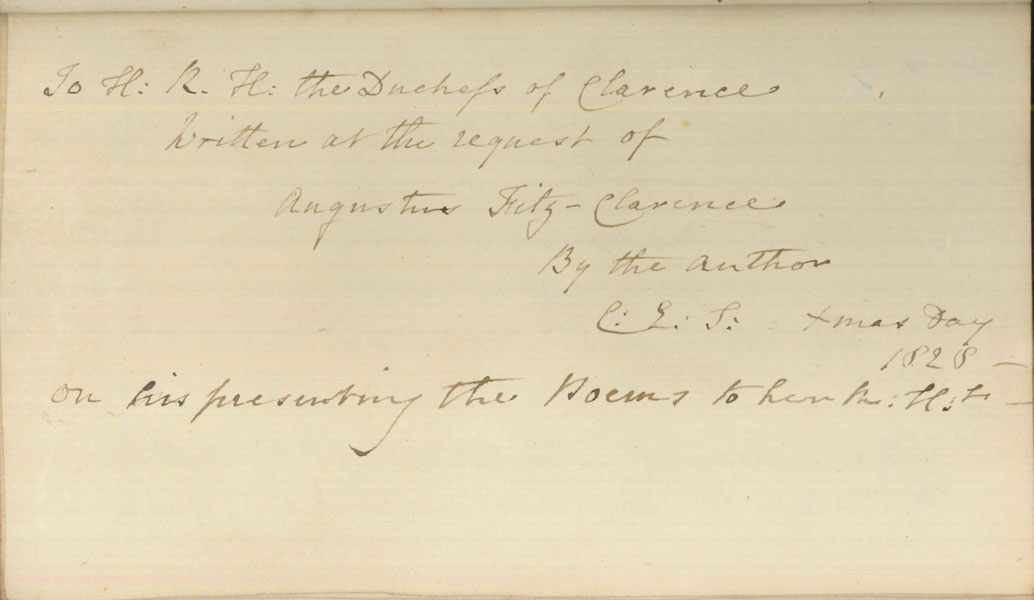 To H: R. H: the Duchess of Clarence
Written at the request of
Augustus Fitz-Clarence
By the author
C: E: S: Xmas Day
1828 —
on his presenting the Poems to her R: H: ss —